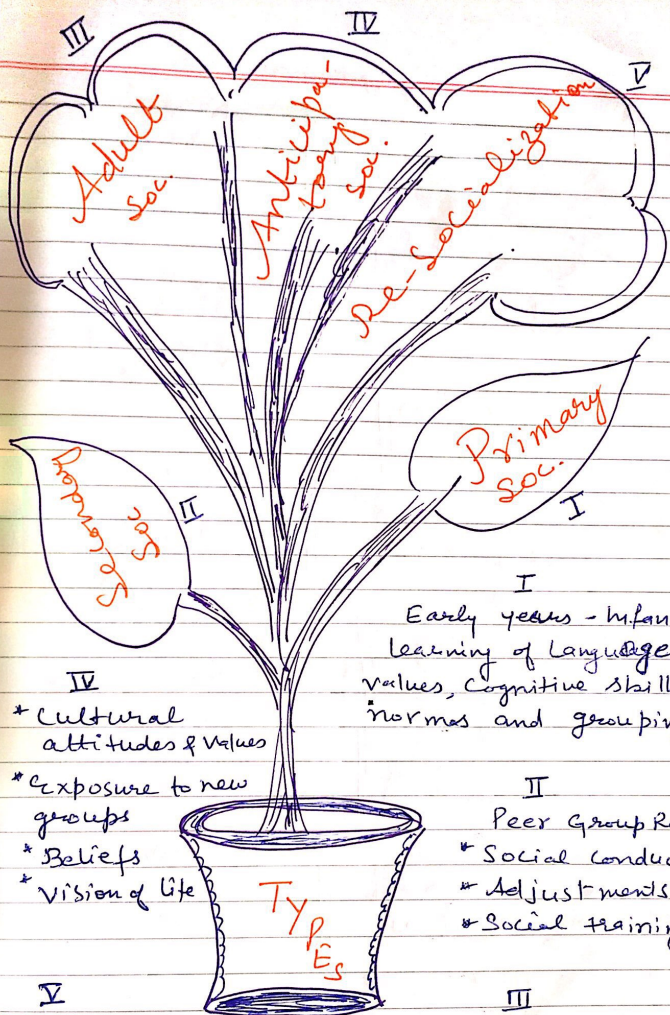 III
IV
V
Adult
Soc.
Anticipa-
tory
Soc.
Re-Socialization
Secondary
Soc
II
Primary
Soc.
I
I
Early years -
learning of Language
values, Cognitive skill
normas and
IV
* Cultural
attitudes & values
* Exposure to new
groups
* Beliefs
* Vision of life
II
Peer Group
* Social
* Adjustments
* Social
TYPES
V
III